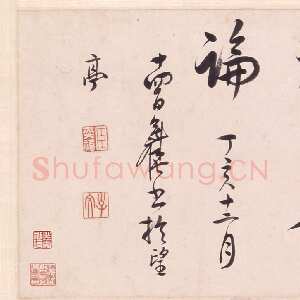 論
丁亥十二月
十四日書於望
亭
Shufawang.CN